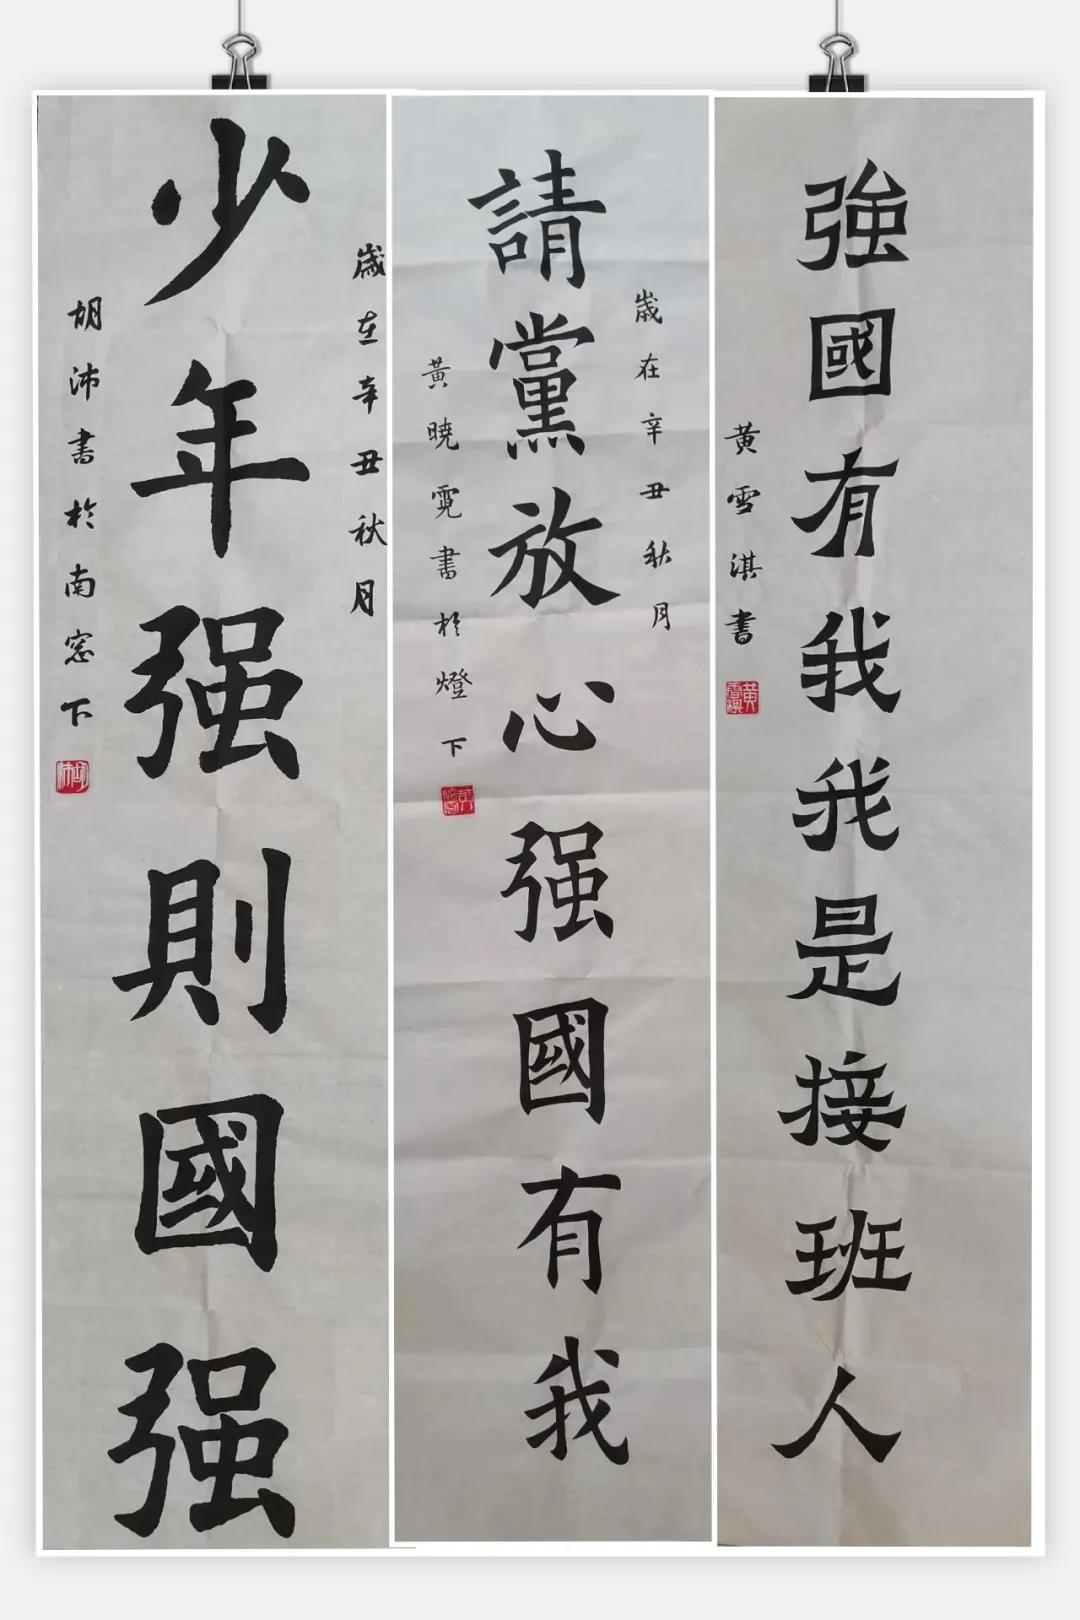 強國有我我是接班人
黄雪淇書
歲在辛丑秋月
請黨放心强國有我
黃曉霓書於燈下
歲在辛丑秋月
少年强則國强
胡沛書於南窓下